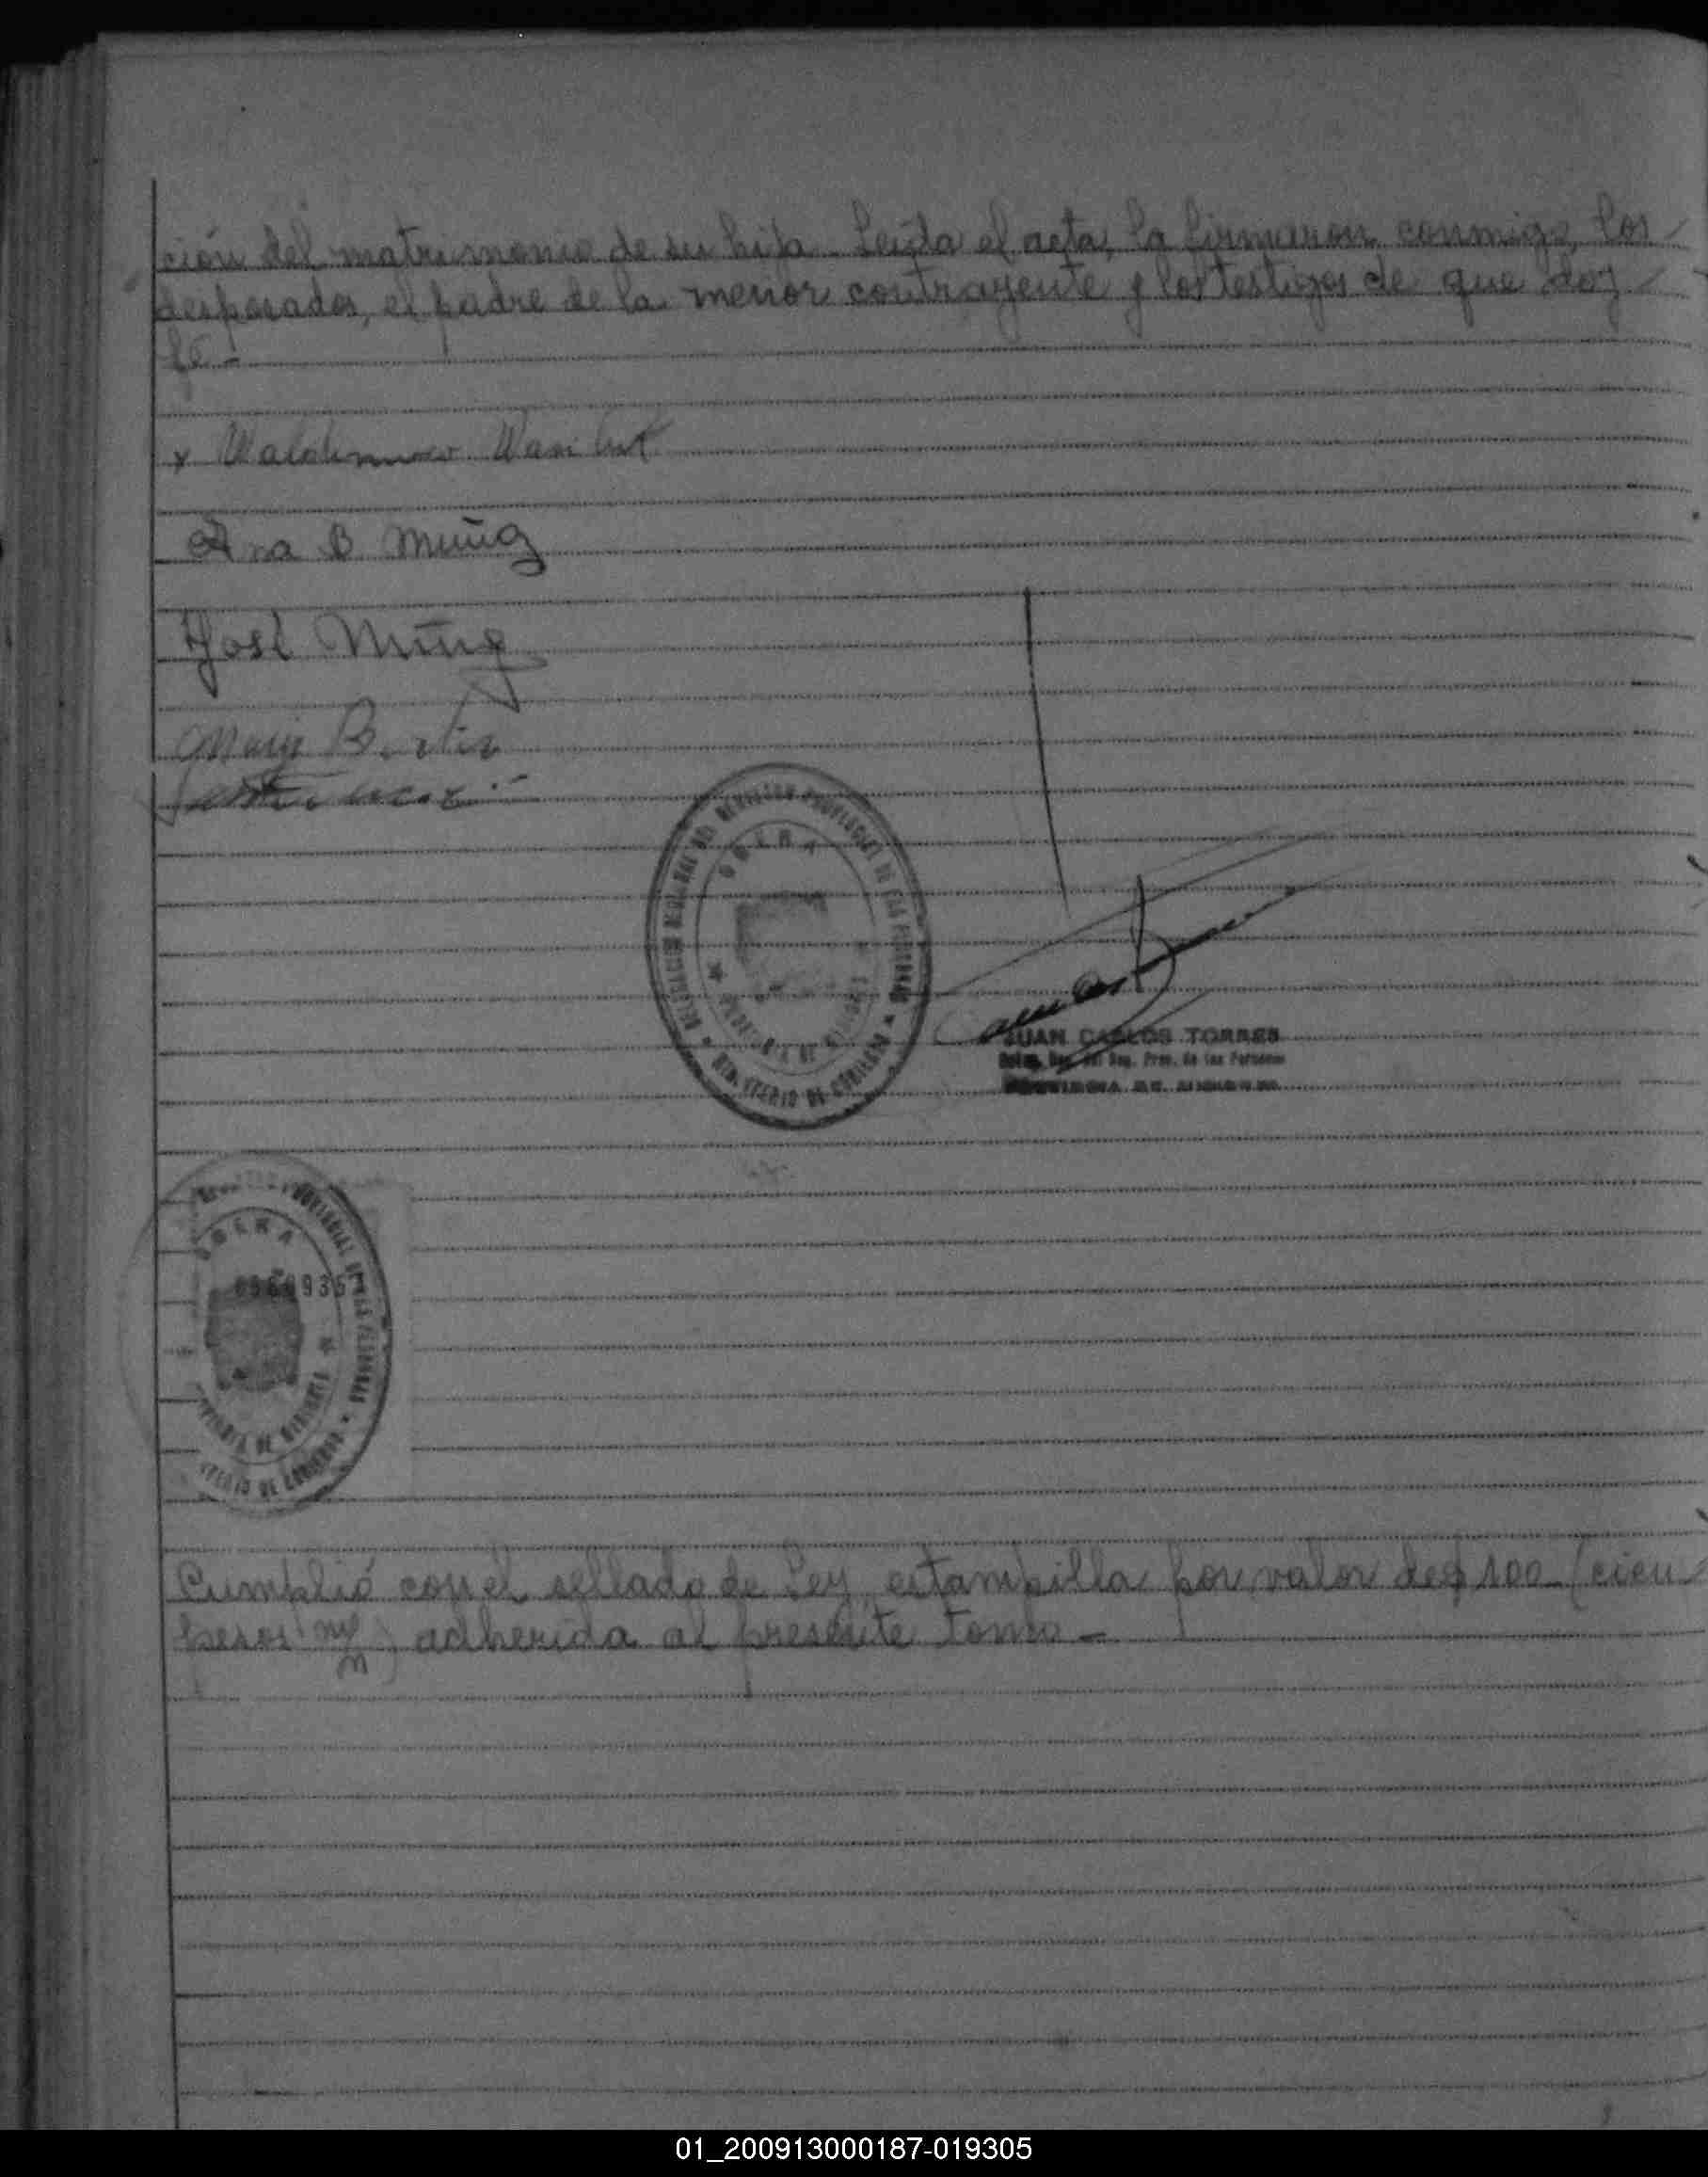 ción del matrimonio de su hija. Leída el acta, la firmaron conmigo, los
desposados, el padre de la menor contrayente y los testigos de que doy
fé.-
x Waldemar
Ana B Muñoz
José Muñoz
OBERA
DELEGACION DEL REGISTRO PROVINCIAL DE LAS PERSONAS
PROVINCIA DE MISIONES
MINISTERIO DE GOBIERNO
JUAN CARLOS TORRES
Reg. Prov. de las Personas
PROVINCIA DE MISIONES
PROVINCIAL DE LAS PERSONAS
OBERA
PROVINCIA DE MISIONES
DE GOBIERNO
Cumplió con el sellado de Ley, estampilla por valor de $ 100 - (cien
pesos m/n) adherida al presente tomo -
01_200913000187-019305